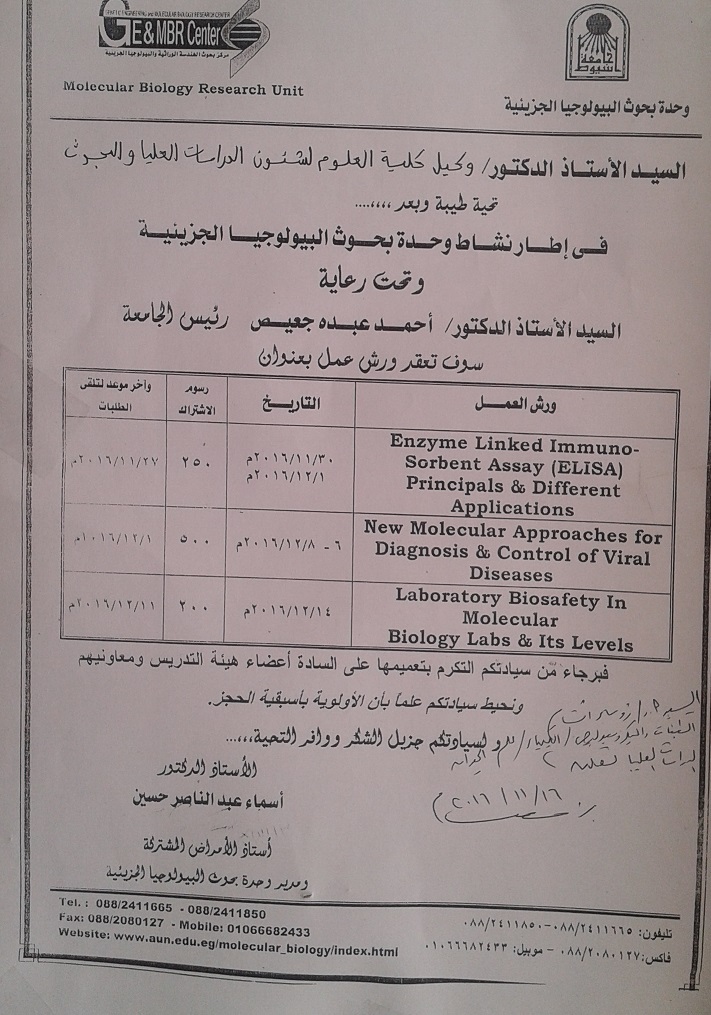 GENETIC ENGINEERING AND MOLECULAR BIOLOGY RESEARCH CENTER
GE & MBR Center
مركز بحوث الهندسة الوراثية والبيولوجيا الجزيئية
Molecular Biology Research Unit
جامعة أسيوط
وحدة بحوث البيولوجيا الجزيئية
السيد الأستاذ الدكتور/ وكيل كلية العلوم لشئون الدراسات العليا والبحوث
تحية طيبة وبعد ،،،،....
فى إطار نشاط وحدة بحوث البيولوجيا الجزيئية
وتحت رعاية
السيد الأستاذ الدكتور/ أحمد عبده جعيص رئيس الجامعة
سوف تعقد ورش عمل بعنوان
ورش العمل التاريخ رسوم الاشتراك وآخر موعد لتلقى الطلبات
Enzyme Linked Immuno-
Sorbent Assay (ELISA)
Principals & Different
Applications
٢٠١٦/١١/٣٠م
٢٠١٦/١٢/١م
٢٥٠
٢٠١٦/١١/٢٧م
New Molecular Approaches for
Diagnosis & Control of Viral
Diseases
٦ - ٢٠١٦/١٢/٨م
٥٠٠
٢٠١٦/١٢/١م
Laboratory Biosafety In
Molecular
Biology Labs & Its Levels
٢٠١٦/١٢/١٤م
٢٠٠
٢٠١٦/١٢/١١م
فبرجاء من سيادتكم التكرم بتعميمها على السادة أعضاء هيئة التدريس ومعاونيهم
ونحيط سيادتكم علماً بأن الأولوية بأسبقية الحجز.
ولسيادتكم جزيل الشكر ووافر التحية،،،...
الدراسات العليا
٢٠١٦/١١/١٦
الأستاذ الدكتور
أسماء عبد الناصر حسين
أستاذ الأمراض المشتركة
ومدير وحدة بحوث البيولوجيا الجزيئية
Tel. : 088/2411665 - 088/2411850
Fax: 088/2080127 - Mobile: 01066682433
Website: www.aun.edu.eg/molecular_biology/index.html
تليفون: ٠٨٨/٢٤١١٦٦٥-٠٨٨/٢٤١١٨٥٠
فاكس: ٠٨٨/٢٠٨٠١٢٧ - موبيل: ٠١٠٦٦٦٨٢٤٣٣